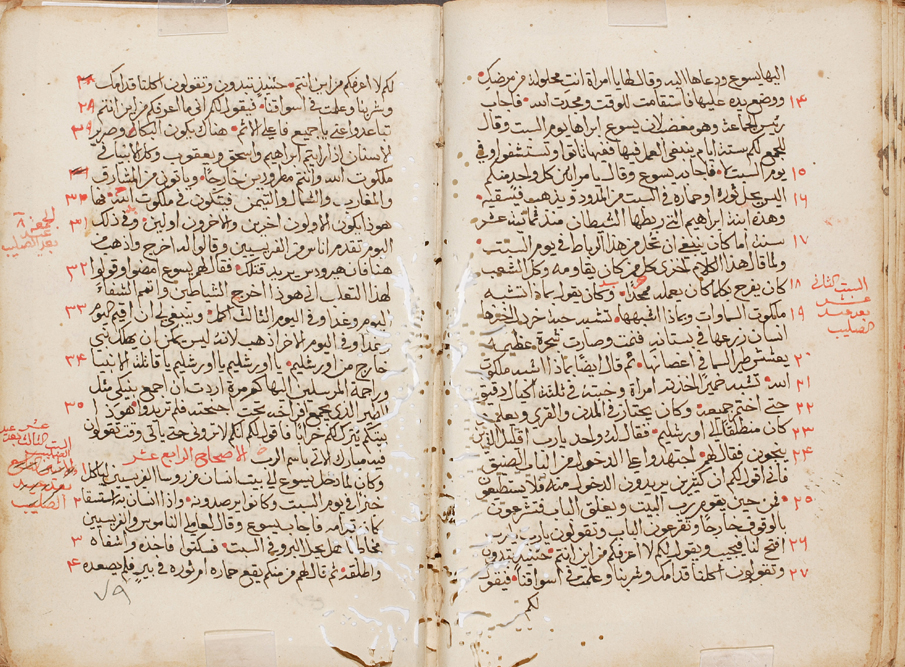 اليها يسوع ودعاها اليه وقال لها يا امراة انتِ محلولة من مرضك
١٣ ووضع يده عليها فاستقامت للوقت ومجدت الله فاجاب
رئيس الجماعة وهو مغضب لان يسوع ابراها يوم السبت وقال
للجمع لكم ستة ايام ينبغي العمل فيها ففيها تاتوا وتستشفوا وفي
١٥ يوم السبت لا فاجابه يسوع وقال يا مرايين كل واحد منكم
١٦ اليس يحل ثوره او حماره في السبت من المدود ويذهب فيسقيه
وهذه ابنة ابراهيم التي ربطها الشيطان منذ ثمانية عشر
١٧ سنة اما كان ينبغي ان تحل من هذا الرباط في يوم السبت
ولما قال هذا الكلام اخزي كل من كان يقاومه وكل الشعب
١٨ كان يفرح بكلما كان يعمله مجدًا وكان يقول بماذا اتشبه
١٩ ملكوت السماوات وبماذا اشبهها تشبه حبة خردل اخذها
انسان زرعها في بستانه فنمت وصارت شجرة عظيمة
٢٠ يعشش طير السما في اغصانها ثم قال ايضًا بماذا اشبه ملكوت
٢١ الله تشبه خميرًا اخذته امراة وخبته في ثلثة اكيال دقيق
٢٢ حتي اختمر جميعه وكان يجتاز في المدن والقري ويعلم
٢٣ كان منطلقًا الي اورشليم فقال له واحد يا رب اقليل الذين
٢٤ ينجون فقال لهم اجتهدوا علي الدخول من الباب الضيق
فاني اقول لكم ان كثيرين يريدون الدخول منه فلا يستطيعون
٢٥ فمن حين يقوم رب البيت ويغلق الباب فتشرعون
بالوقوف خارجًا وتقرعون الباب وتقولون يا رب يا رب
٢٦ افتح لنا فيجيب ويقول لكم لا اعرفكم من اين انتم حينئذ تبتدون
٢٧ وتقولون اكلنا قدامك وشربنا وعلمت في اسواقنا فيقول
لكم
السبت الثاني
عشر
بعد عيد
الصليب
لكم لا اعرفكم من اين انتم حينئذ تبتدون وتقولون اكلنا قدامك
وشربنا وعلمت في اسواقنا فيقول لكم اني ما اعرفكم من اين انتم ٢٨
تباعدوا عني يا جميع فاعلي الاثم هناك يكون البكاء وصرير ٢٩
الاسنان اذا رايتم ابراهيم واسحق ويعقوب وكل الانبيا في
ملكوت الله وانتم مطرودين خارجًا وياتون من المشارق
والمغارب والشمال والتيمن فيتكون في ملكوت الله فها ٣٠
هوذا يكون الاولون اخرين والاخرون اولين وفي ذلك ٣١
اليوم تقدم اناس من الفريسيين وقالوا له اخرج واذهب من
هنا فان هيرودس يريد قتلك فقال لهم يسوع امضوا وقولوا ٣٢
لهذا الثعلب اني هوذا اخرج الشياطين واتمم الشفاء
اليوم وغدا وفي اليوم الثالث اكمل وينبغي لي ان اقيم اليوم ٣٣
وغدا وفي اليوم الاخر اذهب لانه ليس يمكن ان يهلك نبي
خارج من اورشليم يا اورشليم يا اورشليم يا قاتلة الانبيا ٣٤
وراجمة المرسلين اليها كم مرة اردت ان اجمع بنيكي مثل
الطير الذي يجمع افراخه تحت اجنحته فلم تريدوا هوذا ٣٥
بيتكم يترك لكم خرابًا فاقول لكم انكم لا تروني حتي ياتي وقت تقولون
فيه مبارك الاتي باسم الرب الاصحاح الرابع عشر
وكان لما دخل يسوع الي بيت انسان من روسا الفريسيين لياكل
خبزًا في يوم السبت وكانوا يرصدونه واذا انسان به استسقا ٢
كان قدامه فاجاب يسوع وقال لمعلمي الناموس والفريسيين
مخاطبًا هل يحل البرو في السبت فسكتوا فاخذه واشفاه ٣
واطلقه ثم قال لهم من منكم يقع حماره او ثوره في بير فلم يصعده ٤
٧٩
الصليب